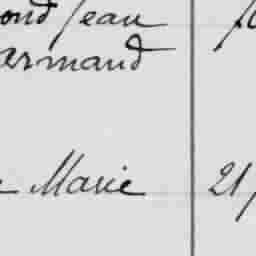 ond Jean
armand
e Marie 21